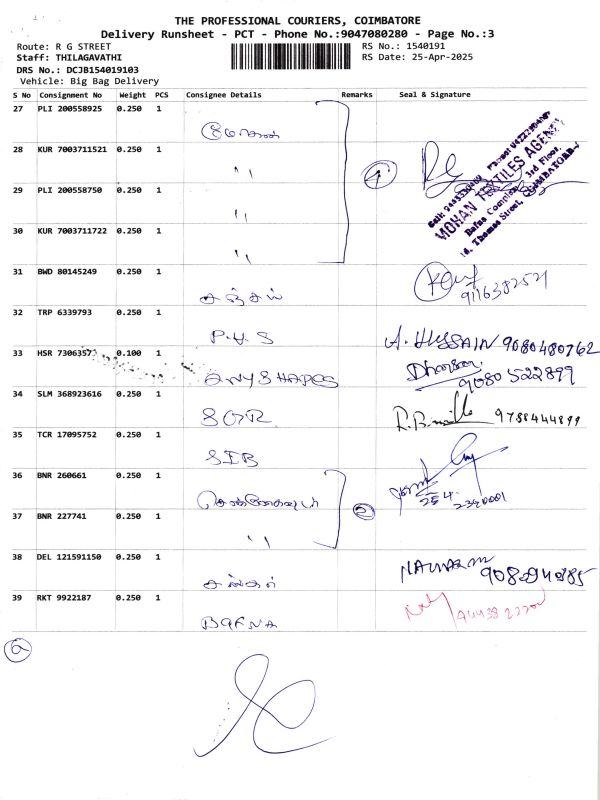 THE PROFESSIONAL COURIERS, COIMBATORE
Delivery Runsheet - PCT - Phone No.:9047080280 - Page No.:3
Route: R G STREET
RS No.: 1540191
Staff: THILAGAVATHI
RS Date: 25-Apr-2025
DRS No.: DCJB154019103
Vehicle: Big Bag Delivery
S No Consignment No Weight PCS Consignee Details Remarks Seal & Signature
27 PLI 200558925 0.250 1
28 KUR 7003711521 0.250 1 ''
MOHAN TEXTILES AGENCY
3rd Floor,
14, Thomas Street, COIMBATORE
29 PLI 200558750 0.250 1 ''
30 KUR 7003711722 0.250 1 ''
31 BWD 80145249 0.250 1 சஞ்சய்
32 TRP 6339793 0.250 1 P.H.S A. HUSSAIN 9080480762
33 HSR 7306357 0.100 1 ANY SHAPES 9080522899
34 SLM 368923616 0.250 1 9788444899
35 TCR 17095752 0.250 1 SIB
36 BNR 260661 0.250 1 2
37 BNR 227741 0.250 1 ''
38 DEL 121591150 0.250 1
39 RKT 9922187 0.250 1 BAFNA